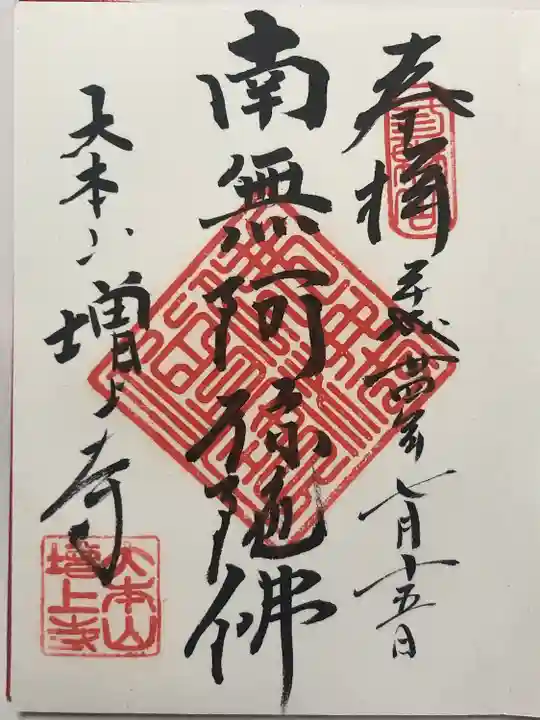 奉拝
平成廿四年七月十五日
南無阿弥陀佛
大本山
増上寺
大本山
増上寺